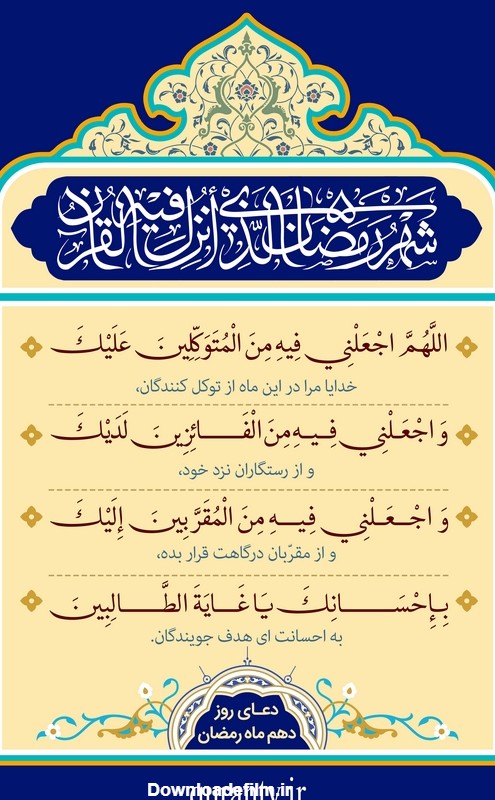 شَهْرُ رَمَضَانَ الَّذِي أُنْزِلَ فِيهِ الْقُرْآنُ
اللَّهُمَّ اجْعَلْنِي فِيهِ مِنَ الْمُتَوَكِّلِينَ عَلَيْكَ
خدایا مرا در این ماه از توکل کنندگان،
وَ اجْعَلْنِي فِيهِ مِنَ الْفَائِزِينَ لَدَيْكَ
و از رستگاران نزد خود،
وَ اجْعَلْنِي فِيهِ مِنَ الْمُقَرَّبِينَ إِلَيْكَ
و از مقرّبان درگاهت قرار بده،
بِإِحْسَانِكَ يَا غَايَةَ الطَّالِبِينَ
به احسانت ای هدف جویندگان.
دعای روز
دهم ماه رمضان
Downloadefilm.ir